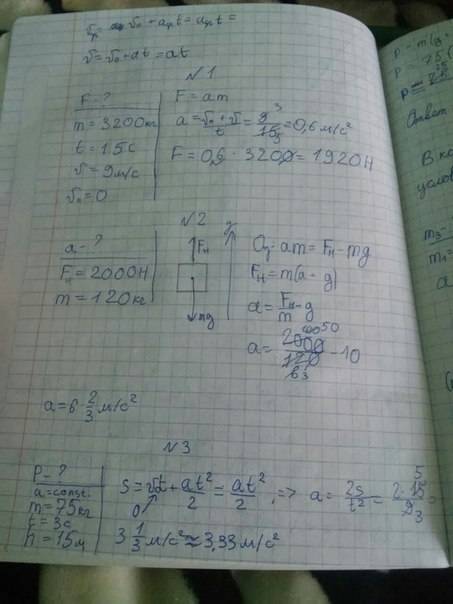 v = v₀ + at = at
№1
F - ?
m = 3200 кг
t = 15 с
v = 9 м/с
v₀ = 0
F = am
a = (v₀ + v)/t = 9/15 = 0,6 м/с²
F = 0,6 · 3200 = 1920 Н
№2
a - ?
Fн = 2000 Н
m = 120 кг
Fн
mg
y
Oy: am = Fн - mg
Fн = m(a - g)
a = Fн/m - g
a = 2000/120 - 10
a = 6 2/3 м/с²
№3
P - ?
a = const.
m = 75 кг
t = 3 с
h = 15 м
S = v₀t + at²/2 = at²/2 ; => a = 2s/t² = 2·15/9 =
0
3 1/3 м/с² ≈ 3,33 м/с²
Ответ
В к
услов